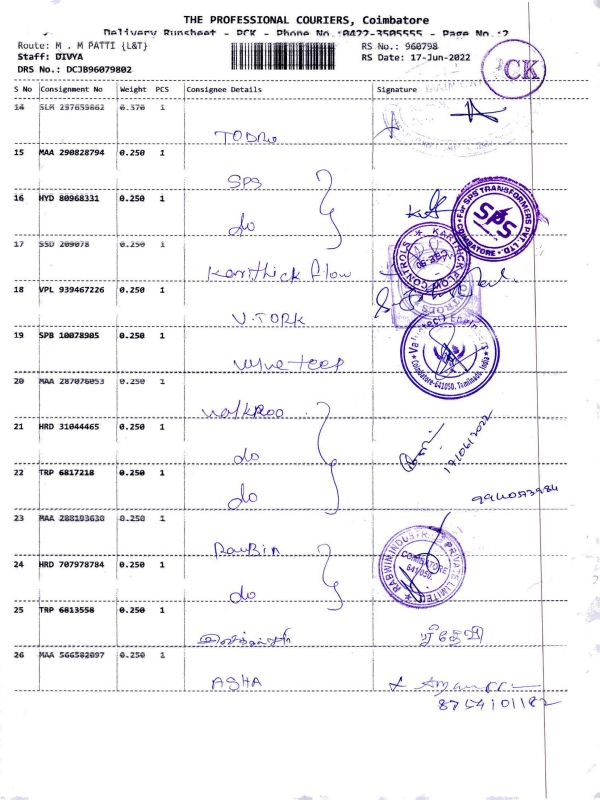 THE PROFESSIONAL COURIERS, Coimbatore
Delivery Runsheet - PCK - Phone No.:0422-3505555 - Page No.:2
Route: M . M PATTI {L&T}
RS No.: 960798
Staff: DIVYA
RS Date: 17-Jun-2022
DRS No.: DCJB96079802
CK
S No Consignment No Weight PCS Consignee Details Signature
14 SLM 297659862 0.370 1
TODRO
15 MAA 290828794 0.250 1
SPS
16 HYD 80968331 0.250 1
do
For SPS TRANSFORMERS PVT. LTD.
SPS
COIMBATORE
17 SSD 209078 0.250 1
Karithick flow
KARTHICK FLOW CONTROLS
18 VPL 939467226 0.250 1
V.TORK
19 SPB 10078905 0.250 1
Valve teep
Coimbatore-641050. Tamilnadu, India
20 MAA 287076053 0.250 1
walkroo
21 HRD 31044465 0.250 1
do
19/06/2022
22 TRP 6817218 0.250 1
do
23 MAA 288193630 0.250 1
Raubin
24 HRD 707978784 0.250 1
do
RABWIN INDUSTRIES PRIVATE LIMITED
COIMBATORE
641/050.
25 TRP 6813558 0.250 1
26 MAA 566502097 0.250 1
ASHA
8754101182